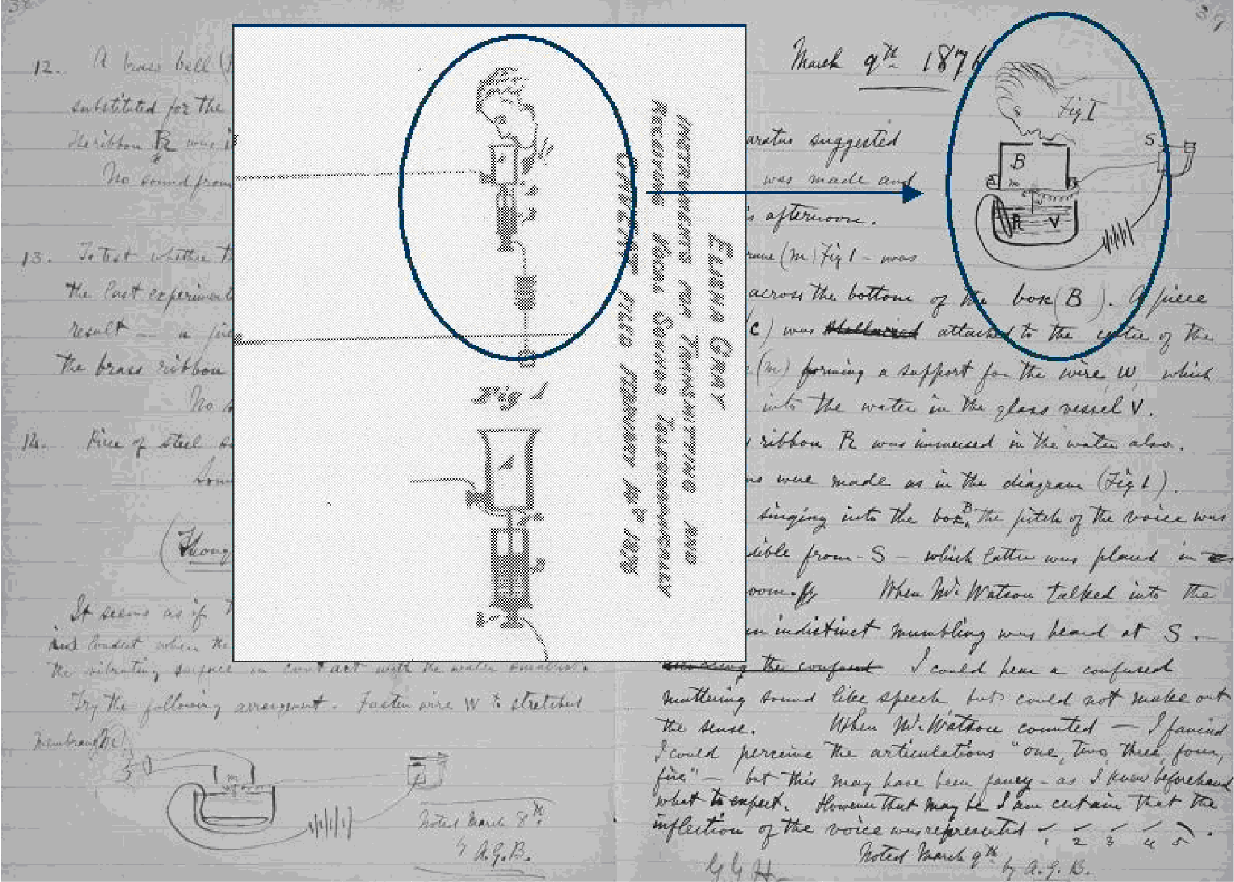 38
12. A brass bell (
substituted for the
the ribbon R was i
No sound from
13. To test whether t
the last experiment
result a
the brass ribbon
No s
14. Piece of steel s
Soun
(Thoug
It seems as if
loudest when the
the vibrating surface in contact with the water smallest.
Try the following arrangement. Fasten wire W to stretched
membrane
Noted March 8th
by A.G.B.
ELISHA GRAY
INSTRUMENTS FOR TRANSMITTING AND
RECEIVING VOCAL SOUNDS TELEGRAPHICALLY
CAVEAT FILED FEBRUARY 14th 1876
Fig 1
39
March 9th 1876
Fig I
B
m
S
R V
aratus suggested
was made and
s afternoon.
rane (m) Fig 1 - was
across the bottom of the box (B). A piece
c) was attached to the center of the
(m) forming a support for the wire W which
into the water in the glass vessel V.
ribbon R was immersed in the water also.
ns were made as in the diagram (Fig 1).
singing into the box B, the pitch of the voice was
ible from S - which latter was placed in
oom. When Mr. Watson talked into the
an indistinct mumbling was heard at S. -
the confused I could hear a confused
muttering sound like speech but could not make out
the sense. When Mr. Watson counted - I fancied
I could perceive the articulations "one, two, three, four,
five" - but this may have been fancy - as I knew beforehand
what to expect. However that may be I am certain that the
inflection of the voice was represented
1 2 3 4 5
Noted March 9th by A.G.B.
G G H